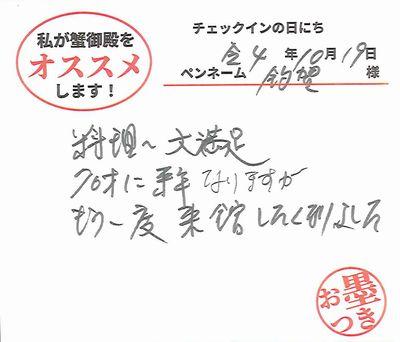 私が蟹御殿を
オススメ
します！
チェックインの日にち
令4年10月19日
ペンネーム 釣聖 様
料理へ大満足
70才に来年なりますが
もう一度来館したくなりました
お墨つき